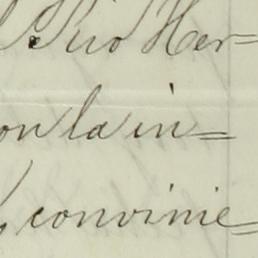 Rio Her=
on la in=
convinie=